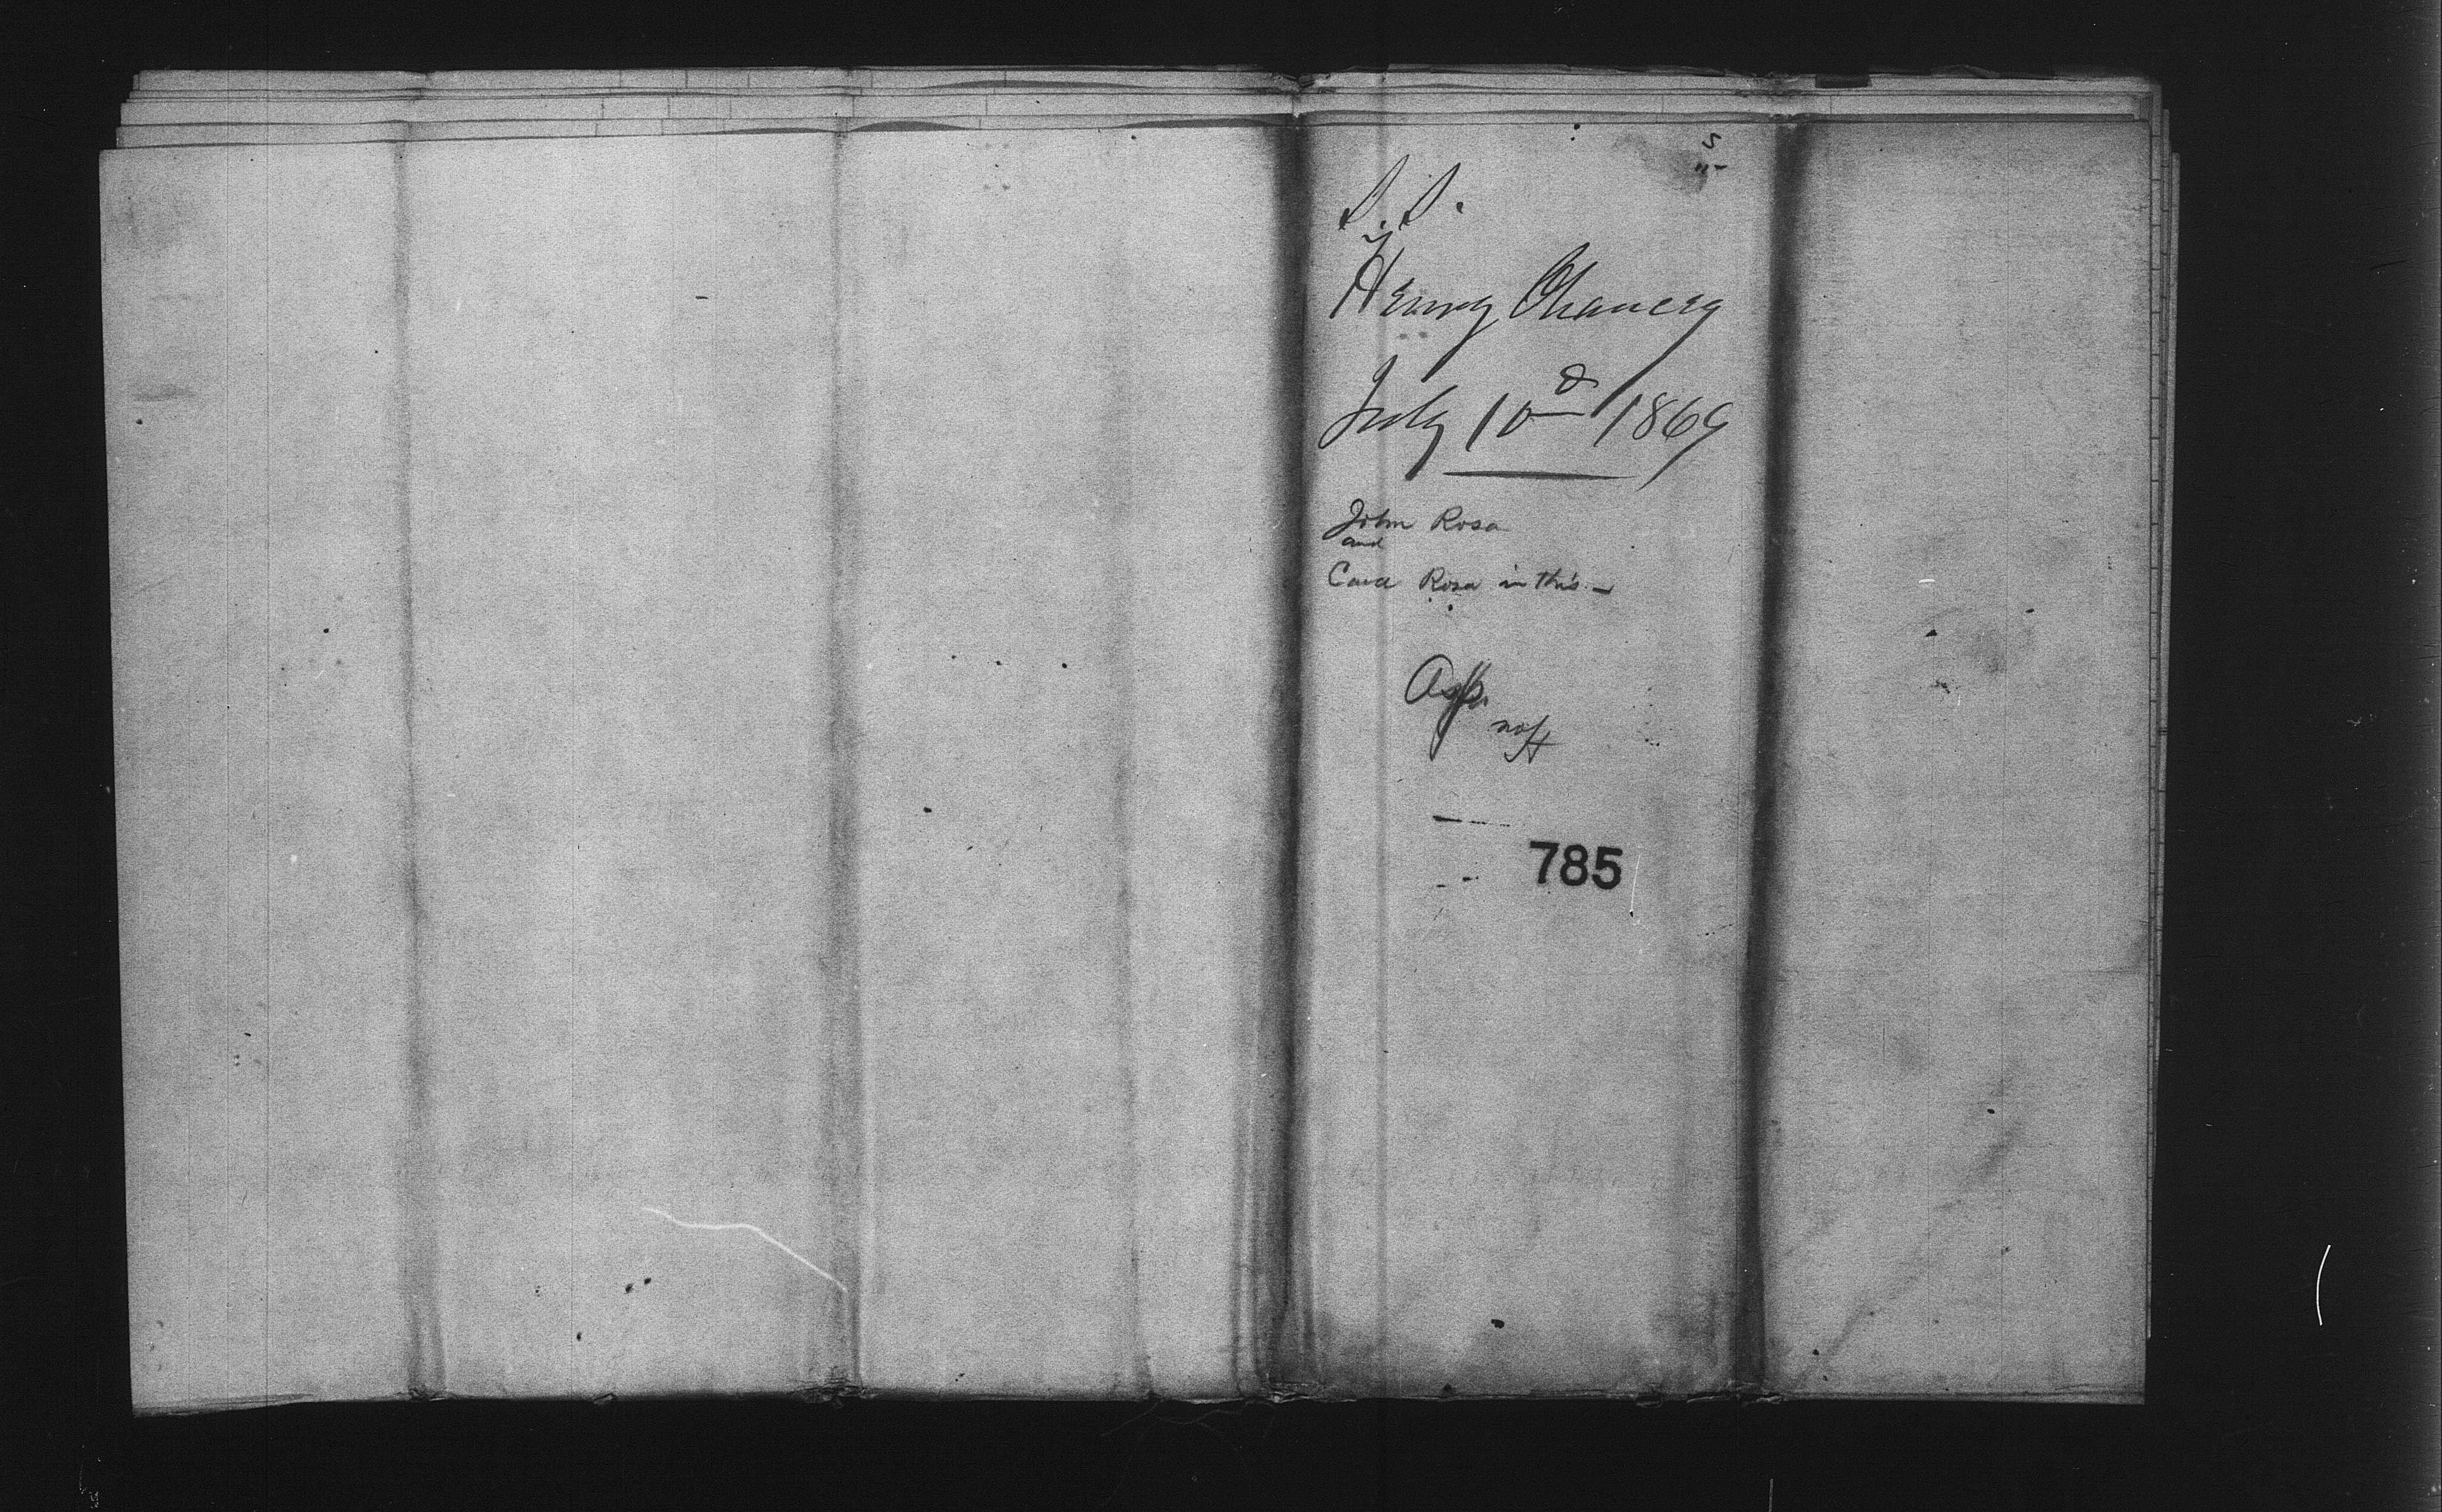 S.S.
Henry Chauncey
July 10 1869
John Rosa
and
Cara Rosa in this -
Asp.
785